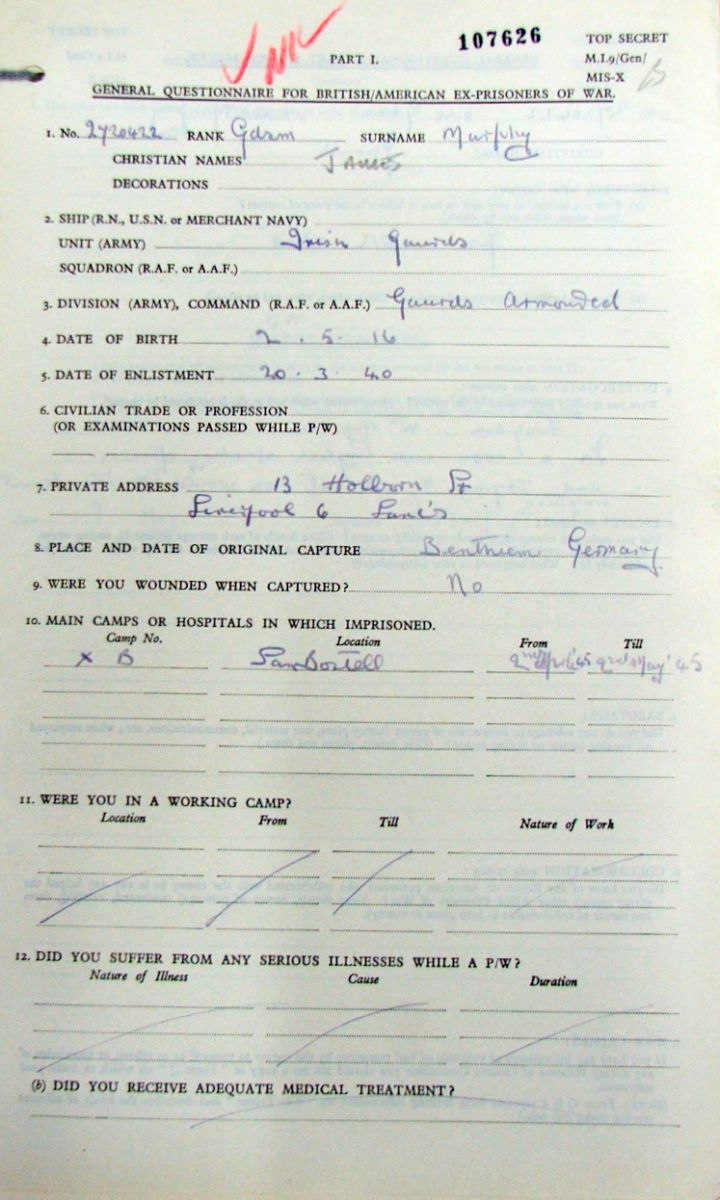 107626
TOP SECRET
PART I.
M.I.9/Gen/
MIS-X
GENERAL QUESTIONNAIRE FOR BRITISH/AMERICAN EX-PRISONERS OF WAR.
1. No. 2720422 RANK Gdsm SURNAME Murphy
CHRISTIAN NAMES JAMES
DECORATIONS
2. SHIP (R.N., U.S.N. or MERCHANT NAVY)
UNIT (ARMY) Irish Gaurds
SQUADRON (R.A.F. or A.A.F.)
3. DIVISION (ARMY), COMMAND (R.A.F. or A.A.F.) Gaurds Armonded
4. DATE OF BIRTH 2 . 5 . 16
5. DATE OF ENLISTMENT 20 . 3 40
6. CIVILIAN TRADE OR PROFESSION
(OR EXAMINATIONS PASSED WHILE P/W)
7. PRIVATE ADDRESS 13 Holborn St
Liverpool 6 Lanc's
8. PLACE AND DATE OF ORIGINAL CAPTURE Benthiem Germany
9. WERE YOU WOUNDED WHEN CAPTURED? No
10. MAIN CAMPS OR HOSPITALS IN WHICH IMPRISONED.
Camp No. Location From Till
X B SanBostell 2nd April '45 2nd May '45
11. WERE YOU IN A WORKING CAMP?
Location From Till Nature of Work
12. DID YOU SUFFER FROM ANY SERIOUS ILLNESSES WHILE A P/W?
Nature of Illness Cause Duration
(b) DID YOU RECEIVE ADEQUATE MEDICAL TREATMENT?